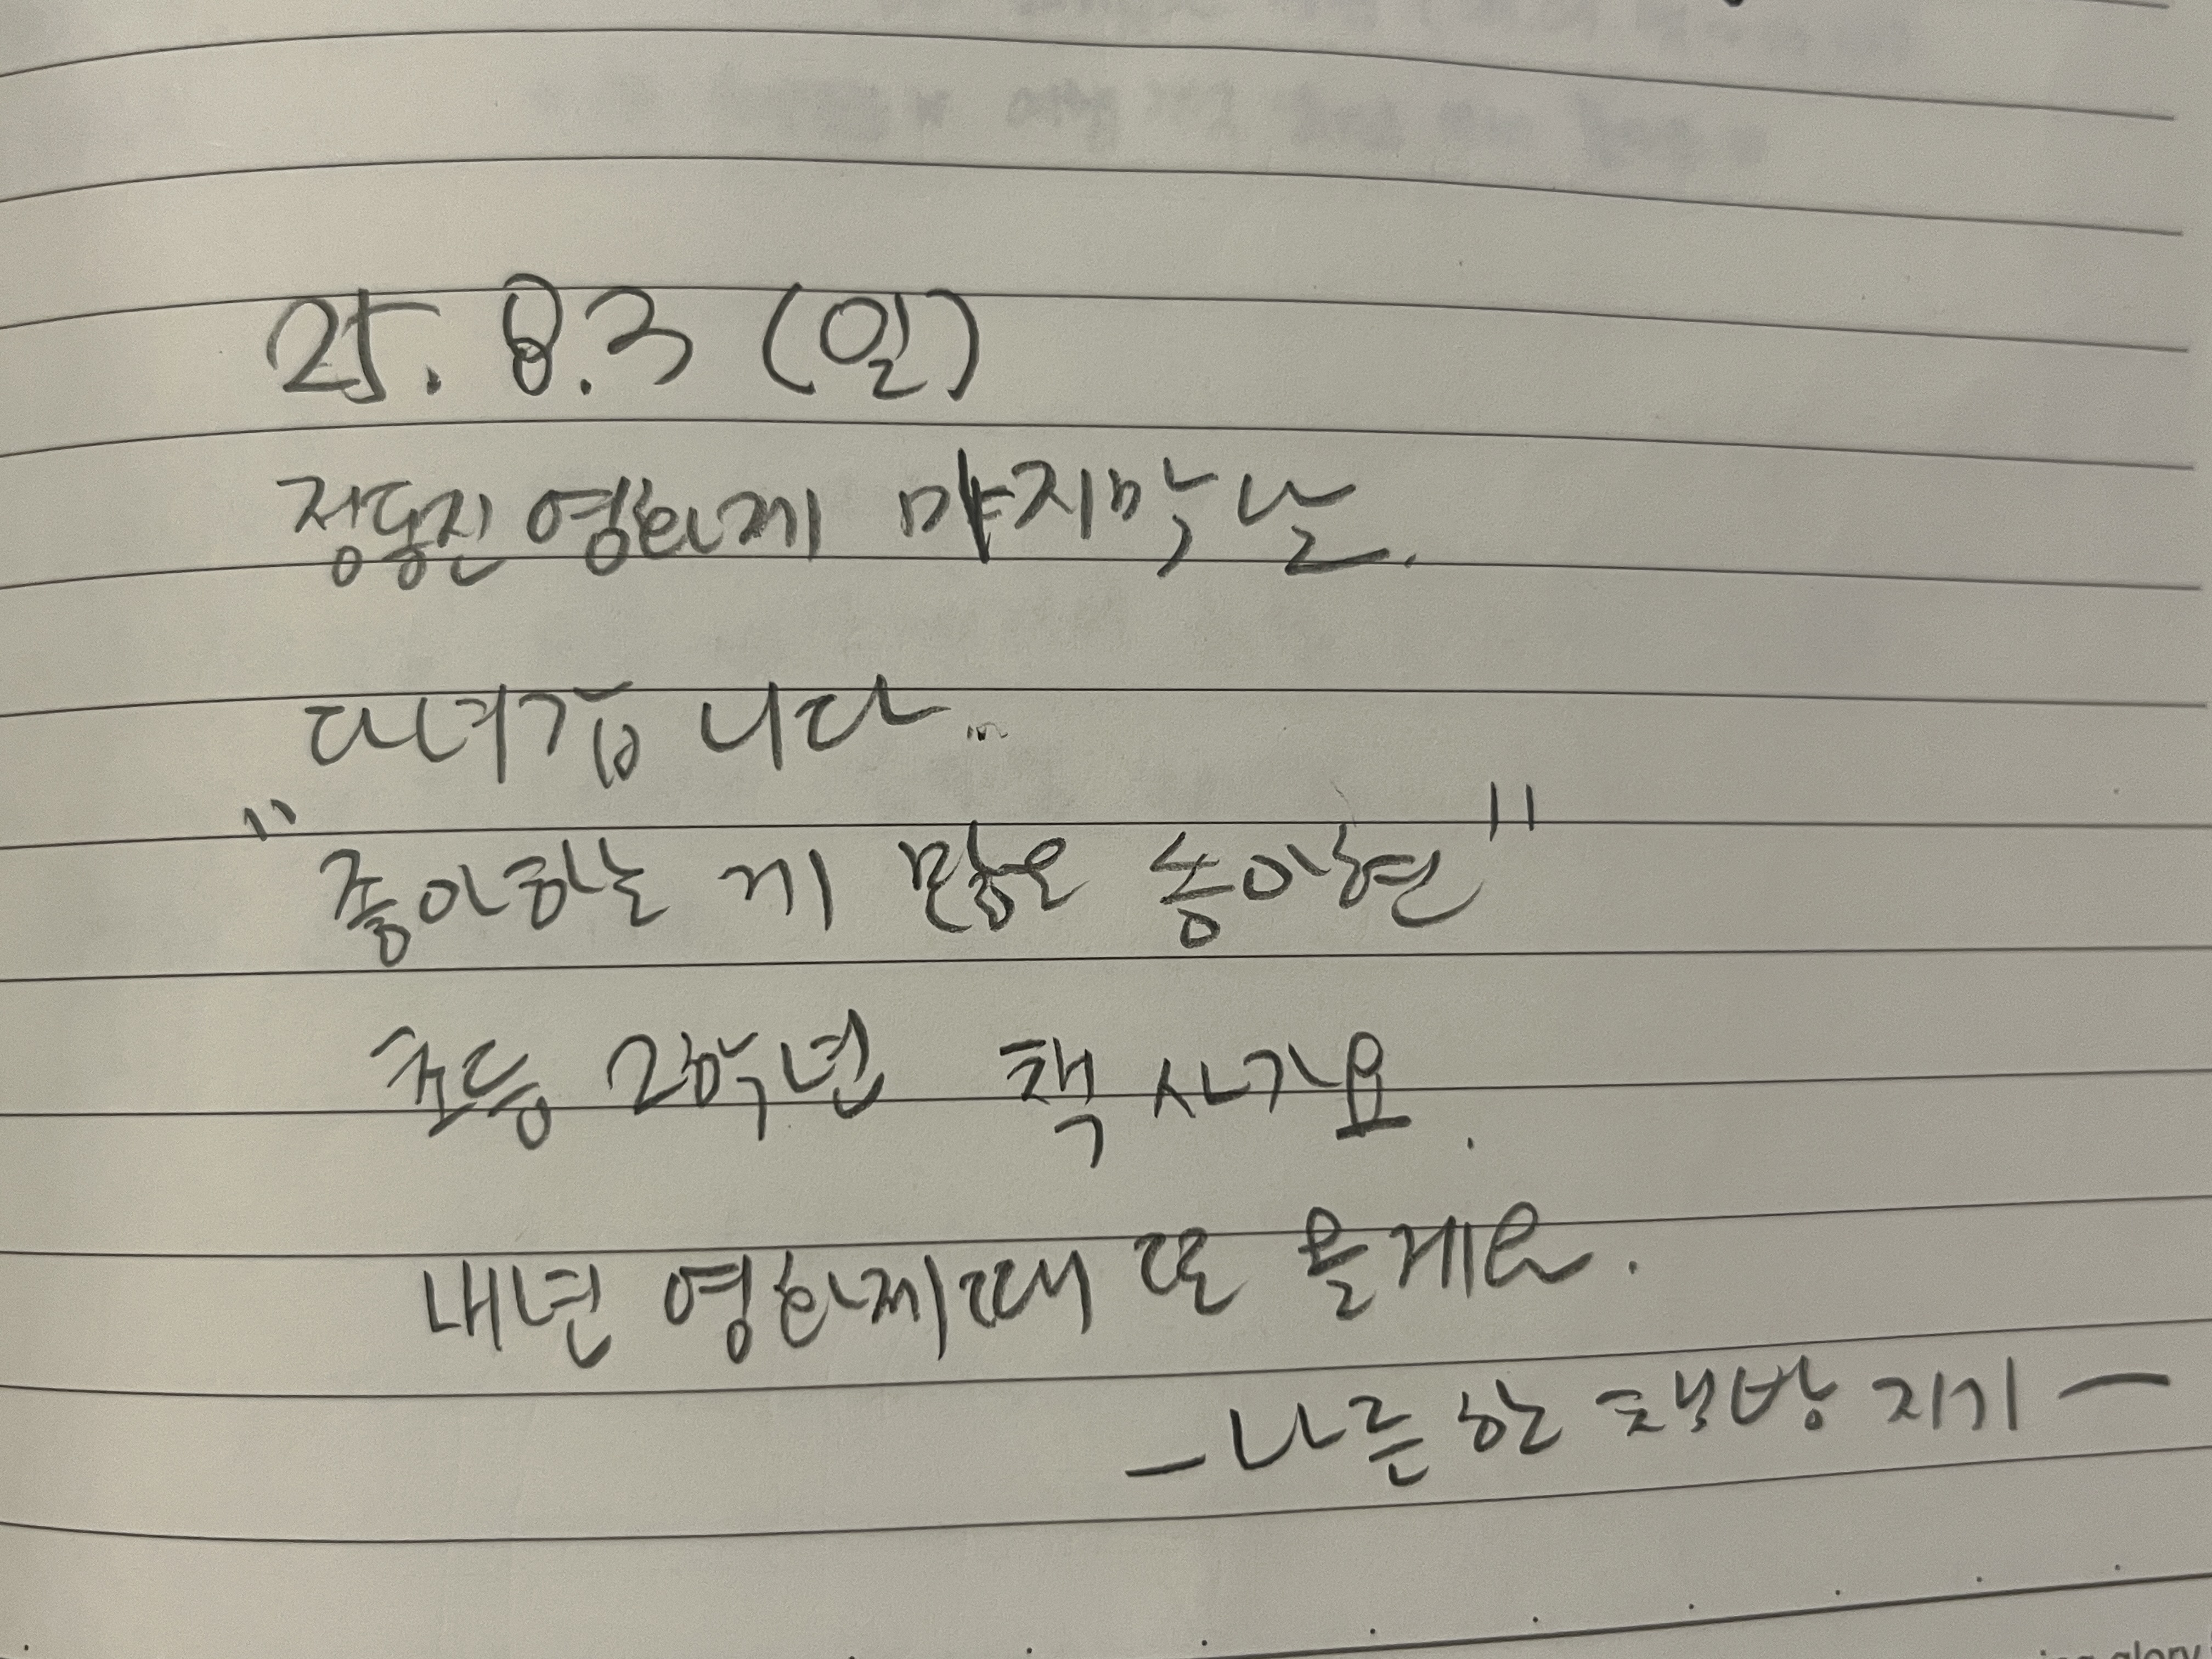 25. 8. 3 (일)
정동진영화제 마지막 날.
다녀갑니다..
"좋아하는 게 많은 송아현"
초등 2학년 책 사가요.
내년 영화제때 또 올게요.
- 나른한 책방지기 -
glory